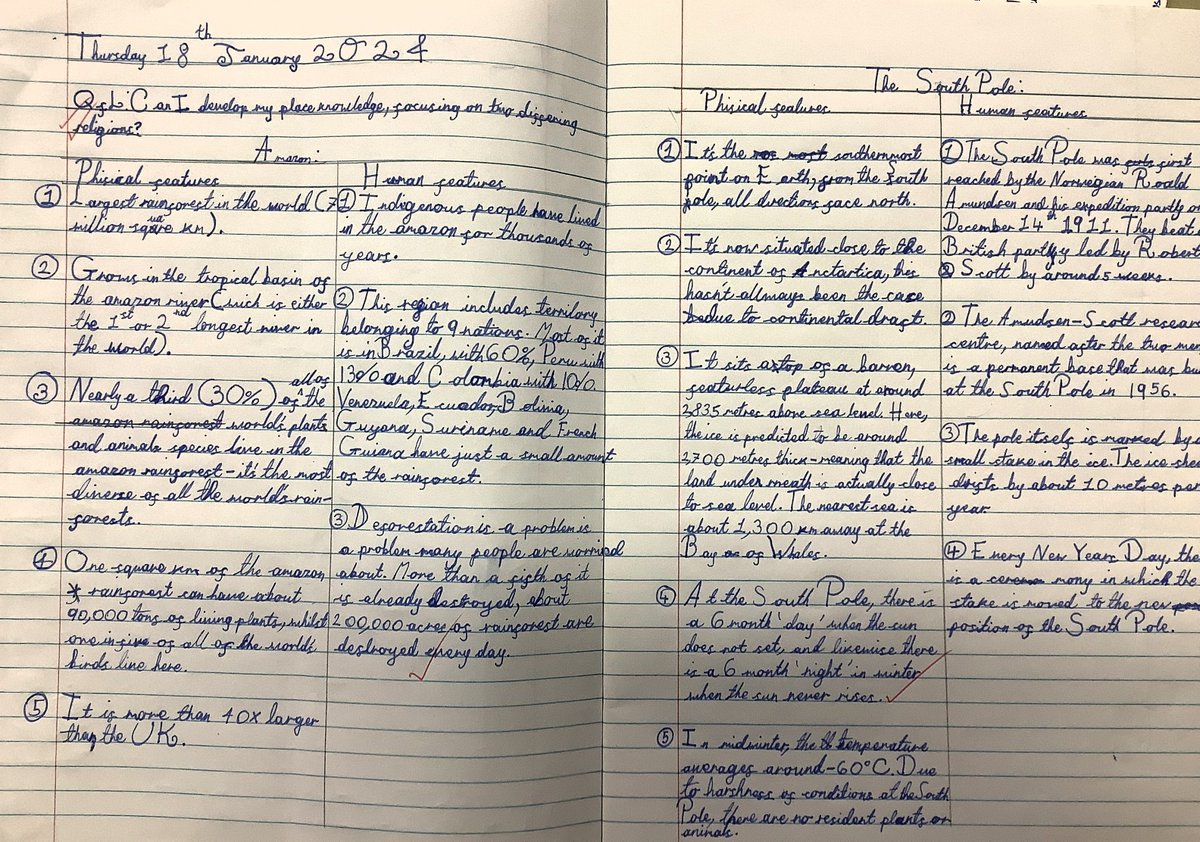 Thursday 18th January 2024
QfL: Can I develop my place knowledge, focusing on two differing
religions?
Amazon:
Phisical features
① Largest rainforest in the world (7
million sqare km).
② Grows in the tropical basin of
the amazon river (wich is either
the 1st or 2nd longest river in
the world).
③ Nearly a third (30%) of all of the
amazon rainforest world's plants
and animals species live in the
amazon rainforest - it's the most
diverse of all the world's rain-
forests.
④ One square km of the amazon
rainforest can have about
90,000 tons of living plants, whilst
one in five of all of the worlds
birds live here.
⑤ It is more than 40x larger
than the UK.
Human features
① Indigenous people have lived
in the amazon for thousands of
years.
② This region includes terrilory
belonging to 9 nations. Most of it
is in Brazil, with 60%, Peru with
13% and Colombia with 10%
Venezuela, Ecuador, Bolivia,
Guyana, Suriname and French
Guiana have just a small amount
of the rainforest.
③ Deforestation is a problem is
a problem many people are worried
about. More than a fifth of it
is already destroyed, about
200,000 acres of rainforest are
destroyed every day.
The South Pole:
Phisical fealures
① It's the most southernmost
point on Earth; from the South
pole, all directions face north.
② It's now situated close to the
continent of Anctartica, this
hasn't allways been the case
due to continental draft.
③ It sits atop of a barron,
featurless plateau at around
2,835 metres above sea level. Here,
the ice is predicted to be around
2700 metres thick - meaning that the
land under neath is actually close
to sea level. The nearest sea is
about 1,300 km away at the
Bay of Whales.
④ At the South Pole, there is
a 6 month 'day' when the sun
does not set, and likewise there
is a 6 month 'night' in winter
when the sun never rises.
⑤ In midwinter, the temperature
averages around -60°C. Due
to harshness of conditions at the South
Pole, there are no resident plants or
animals.
Human features
① The South Pole was first
reached by the Norwegian Roald
Amundsen and his expedition partly on
December 14th 1911. They beat
British partly led by Robert
Scott by around 5 weeks.
② The Amudsen-Scott
centre, named after the two men
is a permanent base that was
at the South Pole in 1956.
③ The pole itself is marked by
small stake in the ice. The ice
drifts by about 10 metres per
year
④ Every New Years Day, the
is a ceremony in which the
stake is moved to the new
position of the South Pole.